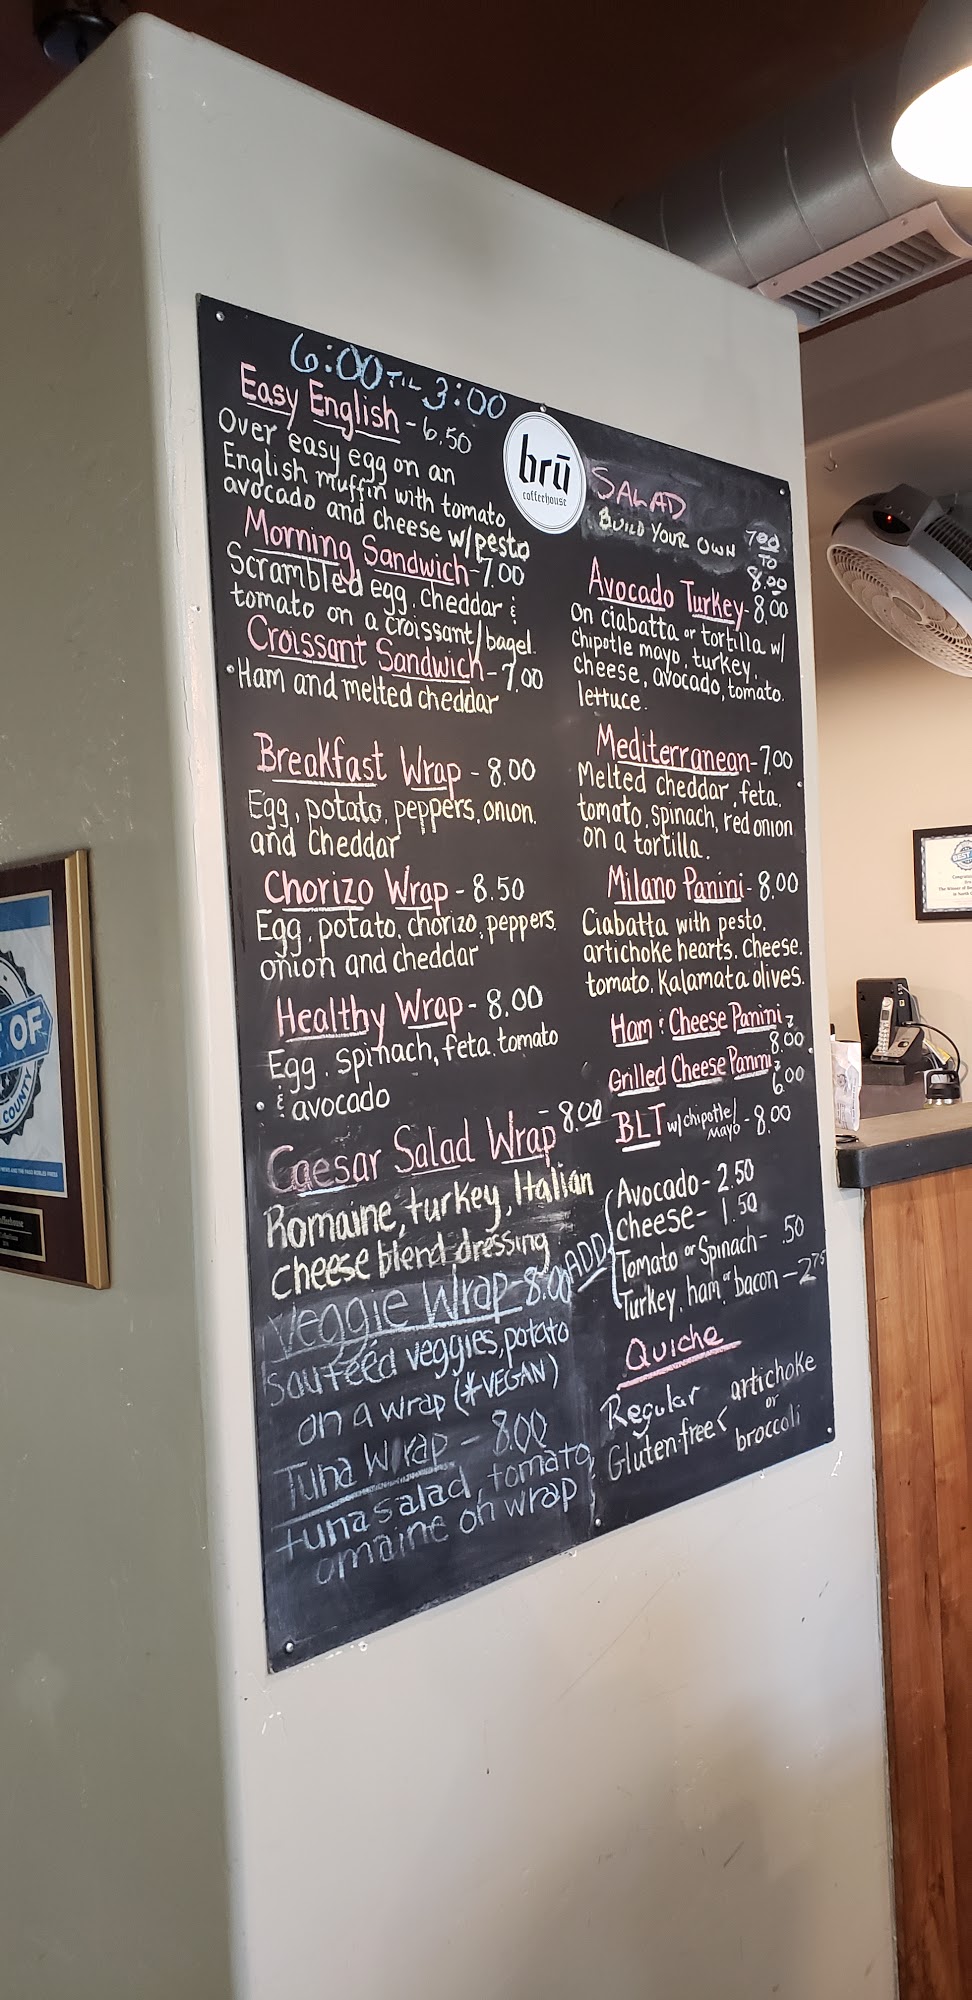 6:00 TIL 3:00
Easy English - 6.50
Over easy egg on an
English muffin with tomato
avocado and cheese w/pesto
Morning Sandwich - 7.00
Scrambled egg, cheddar &
tomato on a croissant/bagel.
Croissant Sandwich - 7.00
• Ham and melted cheddar
Breakfast Wrap - 8.00
Egg, potato, peppers, onion,
and cheddar
Chorizo Wrap - 8.50
Egg, potato, chorizo, peppers,
onion and cheddar
Healthy Wrap - 8.00
Egg, spinach, feta, tomato
& avocado
Caesar Salad Wrap - 8.00
Romaine, turkey, Italian
cheese blend, dressing
Veggie Wrap - 8.00
sauteéd veggies, potato
on a wrap (*VEGAN)
Tuna Wrap - 8.00
tuna salad, tomato,
omaine on wrap
brū
coffeehouse
SALAD
BUILD YOUR OWN 7.00
TO
8.00
Avocado Turkey - 8.00
On ciabatta or tortilla w/
chipotle mayo, turkey,
cheese, avocado, tomato,
lettuce.
Mediterranean - 7.00
Melted cheddar, feta,
tomato, spinach, red onion
on a tortilla.
Milano Panini - 8.00
Ciabatta with pesto,
artichoke hearts, cheese,
tomato, Kalamata olives.
Ham & Cheese Panini -
8.00
Grilled Cheese Panini -
6.00
BLT w/chipotle/
mayo - 8.00
ADD
Avocado - 2.50
cheese - 1.50
Tomato or Spinach - .50
Turkey, ham, or bacon - 2.75
Quiche
Regular
Gluten-free < artichoke
or
broccoli
OF
COUNTY